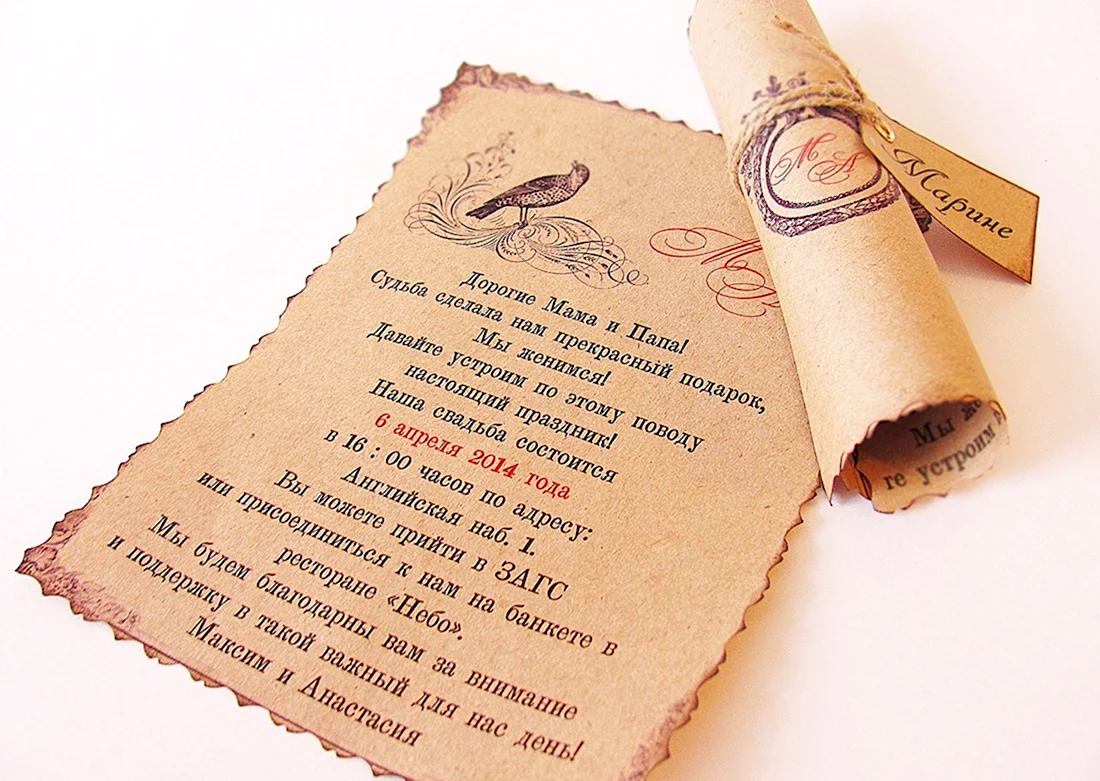 М А
Марине
М
Дорогие Мама и Папа!
Судьба сделала нам прекрасный подарок,
Мы женимся!
Давайте устроим по этому поводу
настоящий праздник!
Наша свадьба состоится
6 апреля 2014 года
в 16 : 00 часов по адресу:
Английская наб. 1.
Вы можете прийти в ЗАГС
или присоединиться к нам на банкете в
ресторане «Небо».
Мы будем благодарны вам за внимание
и поддержку в такой важный для нас день!
Максим и Анастасия
Мы
устроим